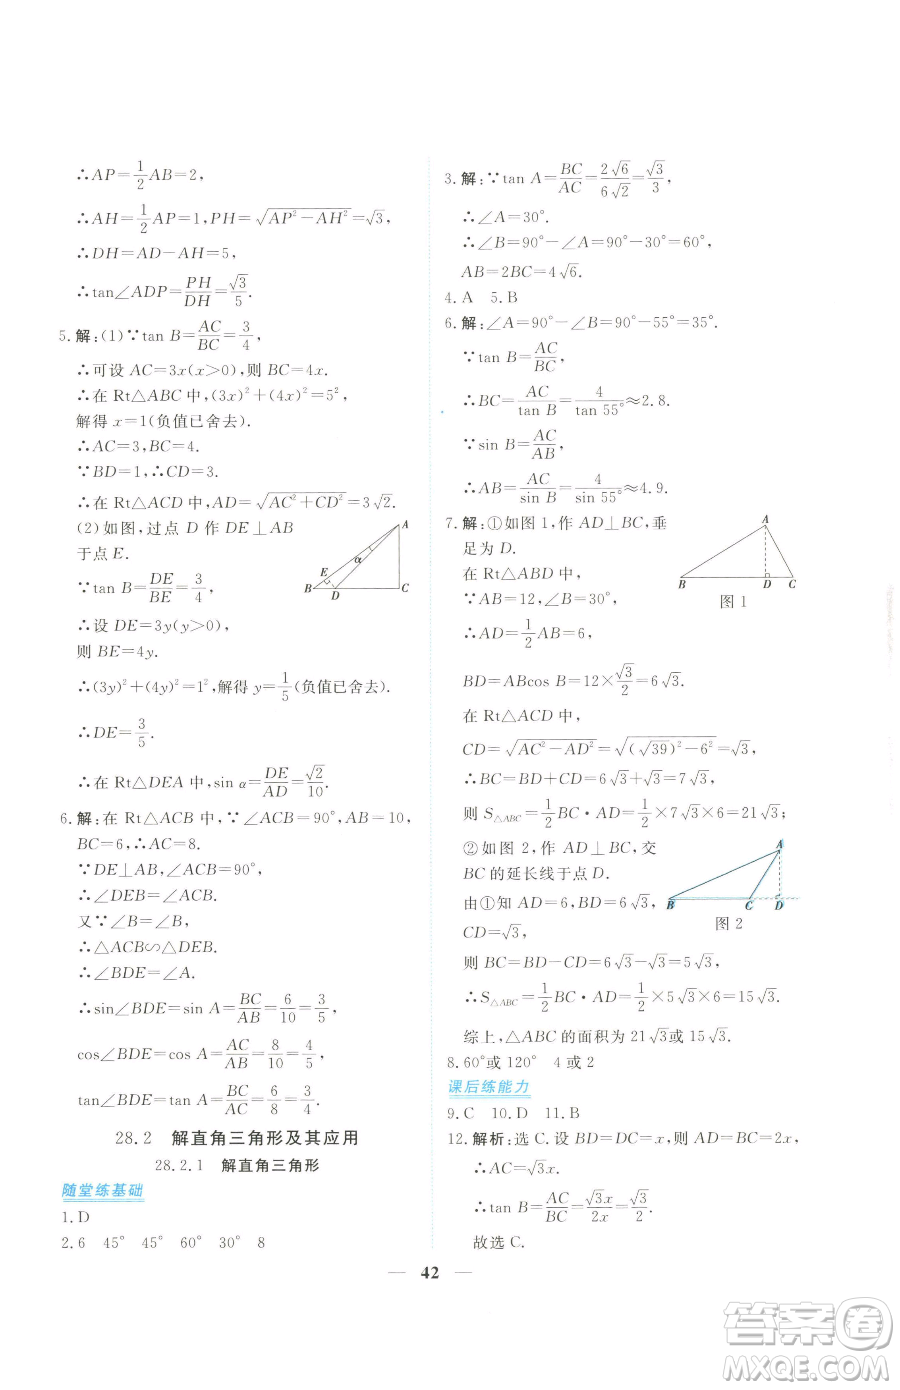 ∴AP=1/2AB=2,
∴AH=1/2AP=1,PH=√(AP²-AH²)=√3,
∴DH=AD-AH=5,
∴tan∠ADP=PH/DH=√3/5.
5.解:(1)∵tan B=AC/BC=3/4,
∴可设 AC=3x(x>0),则 BC=4x.
∴在 Rt△ABC 中,(3x)²+(4x)²=5²,
解得 x=1(负值已舍去).
∴AC=3,BC=4.
∵BD=1,∴CD=3.
∴在 Rt△ACD 中,AD=√(AC²+CD²)=3√2.
(2)如图,过点 D 作 DE⊥AB
于点 E.
A
E
α
B D C
∵tan B=DE/BE=3/4,
∴设 DE=3y(y>0),
则 BE=4y.
∴(3y)²+(4y)²=1²,解得 y=1/5(负值已舍去).
∴DE=3/5.
∴在 Rt△DEA 中,sin α=DE/AD=√2/10.
6.解:在 Rt△ACB 中,∵∠ACB=90°,AB=10,
BC=6,∴AC=8.
∵DE⊥AB,∠ACB=90°,
∴∠DEB=∠ACB.
又∵∠B=∠B,
∴△ACB∽△DEB,
∴∠BDE=∠A.
∴sin∠BDE=sin A=BC/AB=6/10=3/5,
cos∠BDE=cos A=AC/AB=8/10=4/5,
tan∠BDE=tan A=BC/AC=6/8=3/4.
28.2 解直角三角形及其应用
28.2.1 解直角三角形
随堂练基础
1.D
2.6 45° 45° 60° 30° 8
3.解:∵tan A=BC/AC=2√6/6√2=√3/3,
∴∠A=30°.
∴∠B=90°-∠A=90°-30°=60°,
AB=2BC=4√6.
4.A 5.B
6.解:∠A=90°-∠B=90°-55°=35°.
∵tan B=AC/BC,
∴BC=AC/tan B=4/tan 55°≈2.8.
∵sin B=AC/AB,
∴AB=AC/sin B=4/sin 55°≈4.9.
7.解:①如图 1,作 AD⊥BC,垂
足为 D.
A
B D C
图 1
在 Rt△ABD 中,
∵AB=12,∠B=30°,
∴AD=1/2AB=6,
BD=ABcos B=12×√3/2=6√3.
在 Rt△ACD 中,
CD=√(AC²-AD²)=√((√39)²-6²)=√3,
∴BC=BD+CD=6√3+√3=7√3,
则 S△ABC=1/2BC·AD=1/2×7√3×6=21√3;
②如图 2,作 AD⊥BC,交
BC 的延长线于点 D.
A
B C D
图 2
由①知 AD=6,BD=6√3,
CD=√3,
则 BC=BD-CD=6√3-√3=5√3,
∴S△ABC=1/2BC·AD=1/2×5√3×6=15√3.
综上,△ABC 的面积为 21√3或 15√3.
8.60°或 120° 4 或 2
课后练能力
9.C 10.D 11.B
12.解析:选 C.设 BD=DC=x,则 AD=BC=2x,
∴AC=√3x.
∴tan B=AC/BC=√3x/2x=√3/2.
故选 C.
— 42 —
答案圈
MXQE.COM